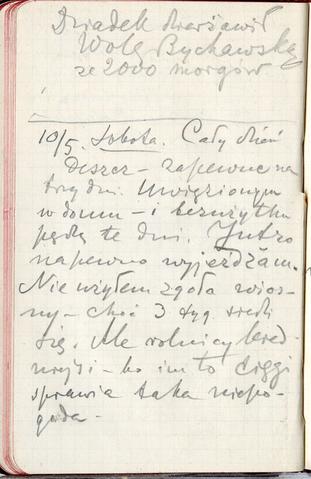 Dziadek dzierżawił
Wolę Bychawską
ze 2000 morgów
10/5. Sobota. Cały dzień
deszcz – zapewne na
trzy dni. Uwięzionym
w domu – i bezużytku
pędzę te dni. Jutro
napewno wyjeżdżam.
Nie użyłem zgoła wios-
ny – choć 3 tyg.
się. Ale rolnicy
– bo im to
sprawia taka niepo-
goda –